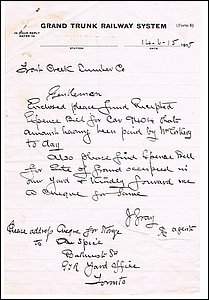 GRAND TRUNK RAILWAY SYSTEM
(Form 8)
IN YOUR REPLY
REFER TO
STATION
DATE
14-6-15 191
Creek Lumber Co
Gentlemen
Enclosed please find Receipted
Expense Bill for Car that
amount having been paid by
to day
Also please find Expense Bill
for of Ground occupied in
our Yard & Kindly forward me
a cheque for same
J Gray
agent
Please address Cheque for
to
Bathurst St
GTR Yard Office
Toronto